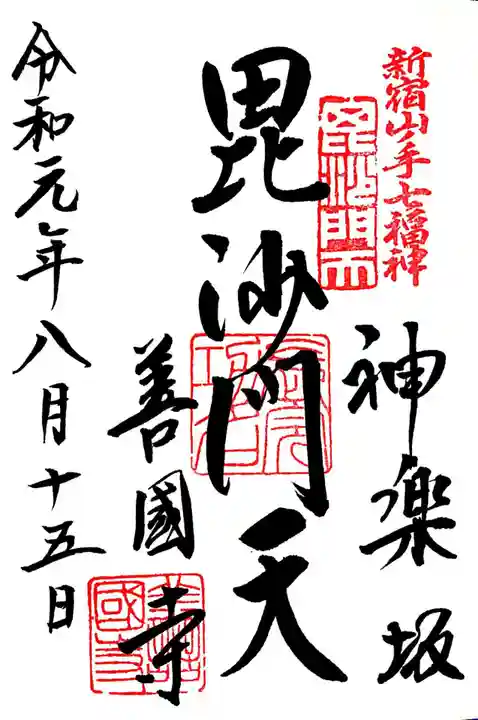 新宿山ノ手七福神
神楽坂
毘沙門天
善國寺
令和元年八月十五日